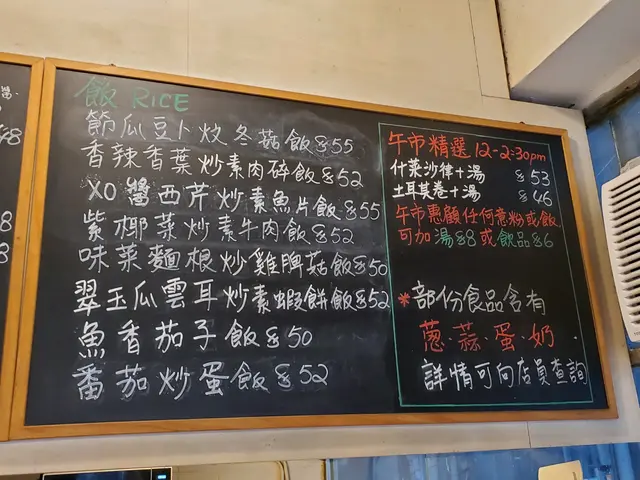 飯 RICE
節瓜豆卜炆冬菇飯$55
香辣香葉炒素肉碎飯$52
XO醬西芹炒素魚片飯$55
紫椰菜炒素牛肉飯$52
味菜麵根炒雞脾菇飯$50
翠玉瓜雲耳炒素蝦餅飯$52
魚香茄子飯$50
番茄炒蛋飯$52
午市精選 12-2:30pm
什菜沙律+湯 $53
土耳其卷+湯 $46
午市惠顧任何意粉或飯
可加湯$8或飲品$6
*部份食品含有
蔥·蒜·蛋·奶
詳情可向店員查詢